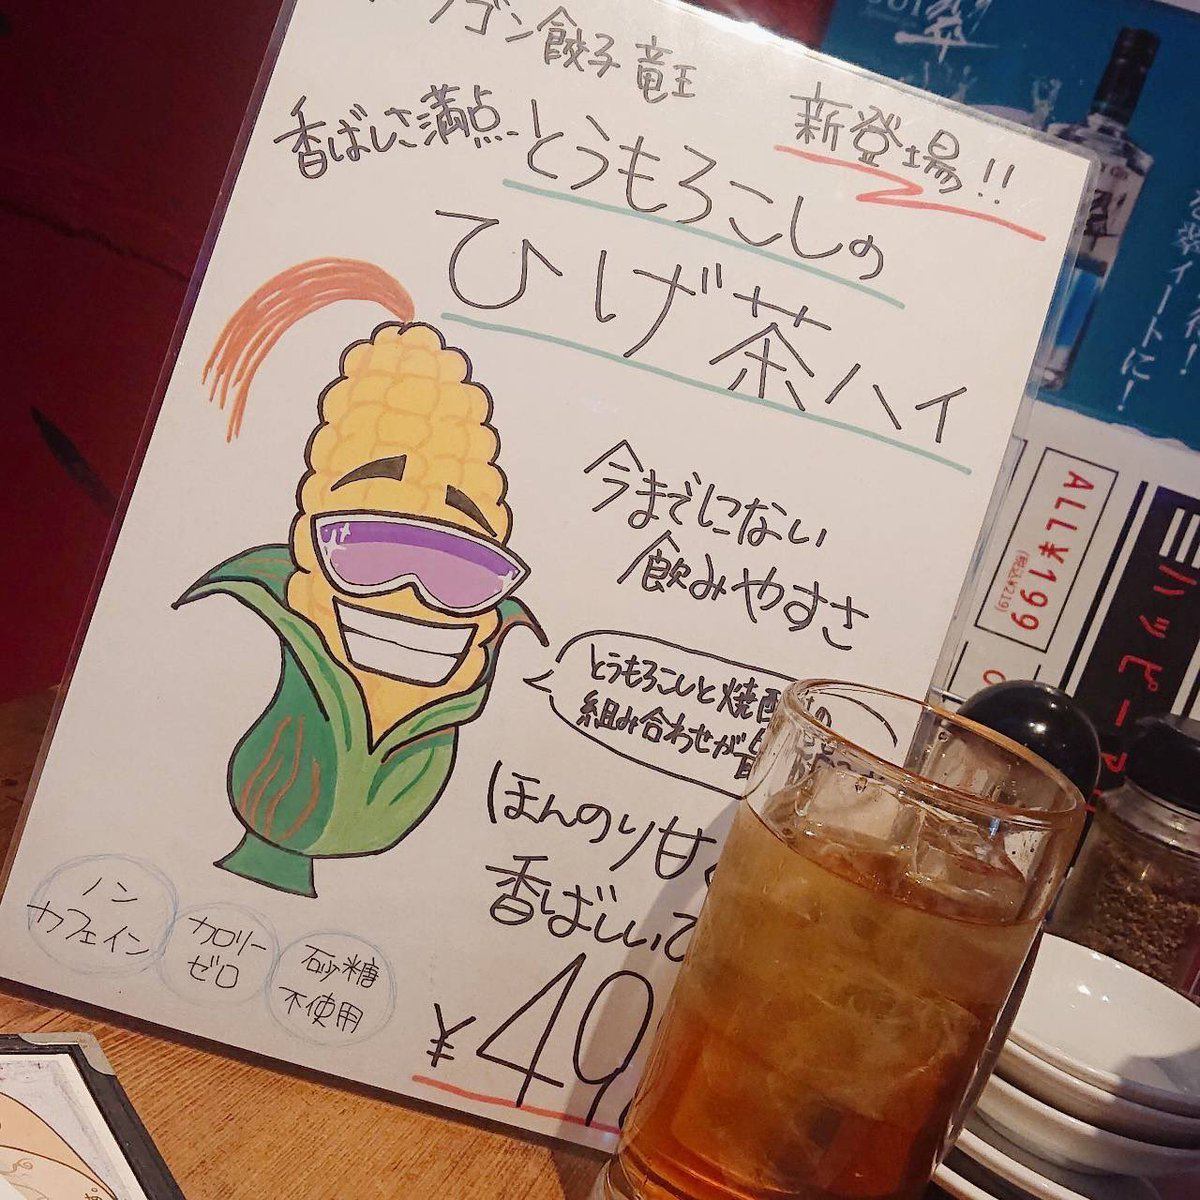 ゴン餃子 竜王
新登場!!
香ばしさ満点
とうもろこしの
ひげ茶ハイ
今までにない
飲みやすさ
とうもろこしと焼酎の
組み合わせが
ほんのり甘く
香ばしい
ノン
カフェイン
カロリー
ゼロ
砂糖
不使用
¥49
ALL ¥199
(税込¥219)
ハッピーア
イートに!